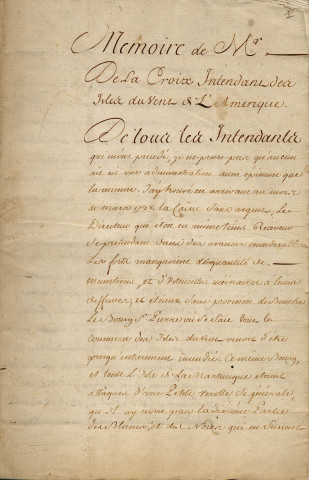 1
Memoire de Mr.
De la Croix Intendant des
Isles du Vent de L'Amerique.
De tous les Intendants
qui m'ont precedé, je ne pense pas qu'aucun
ait eû une administration aussi epineuse que
la mienne. J'ay trouvé en arrivant au mois
de mars 1738 la Caisse sans argent, le
Directeur qui etoit en même tems Receveur
se pretendant dans des avances considerables
Les forts manquoient de quantité de
munitions, et d'Ustensiles necessaires a leur
deffense, et etoient sans provision de Bouche
Le Bourg St. Pierre où se fait tout le
commerce des Isles du Vent venoit d'être
presqu'entierement incendié. Ce même Bourg,
et toute L'Isle de La Martinique etoient
attaqués d'une Petite verolle si generale,
qu'il n'y avoit pas la dixième Partie
des Blancs, et des Noirs qui en fussent